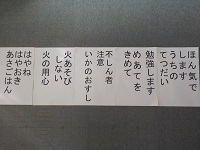 ほん気で
します
うちの
てつだい
勉強します
めあてを
きめて
不しん者
注意
いかのおすし
火あそび
しない
火の用心
はやね
はやおき
あさごはん